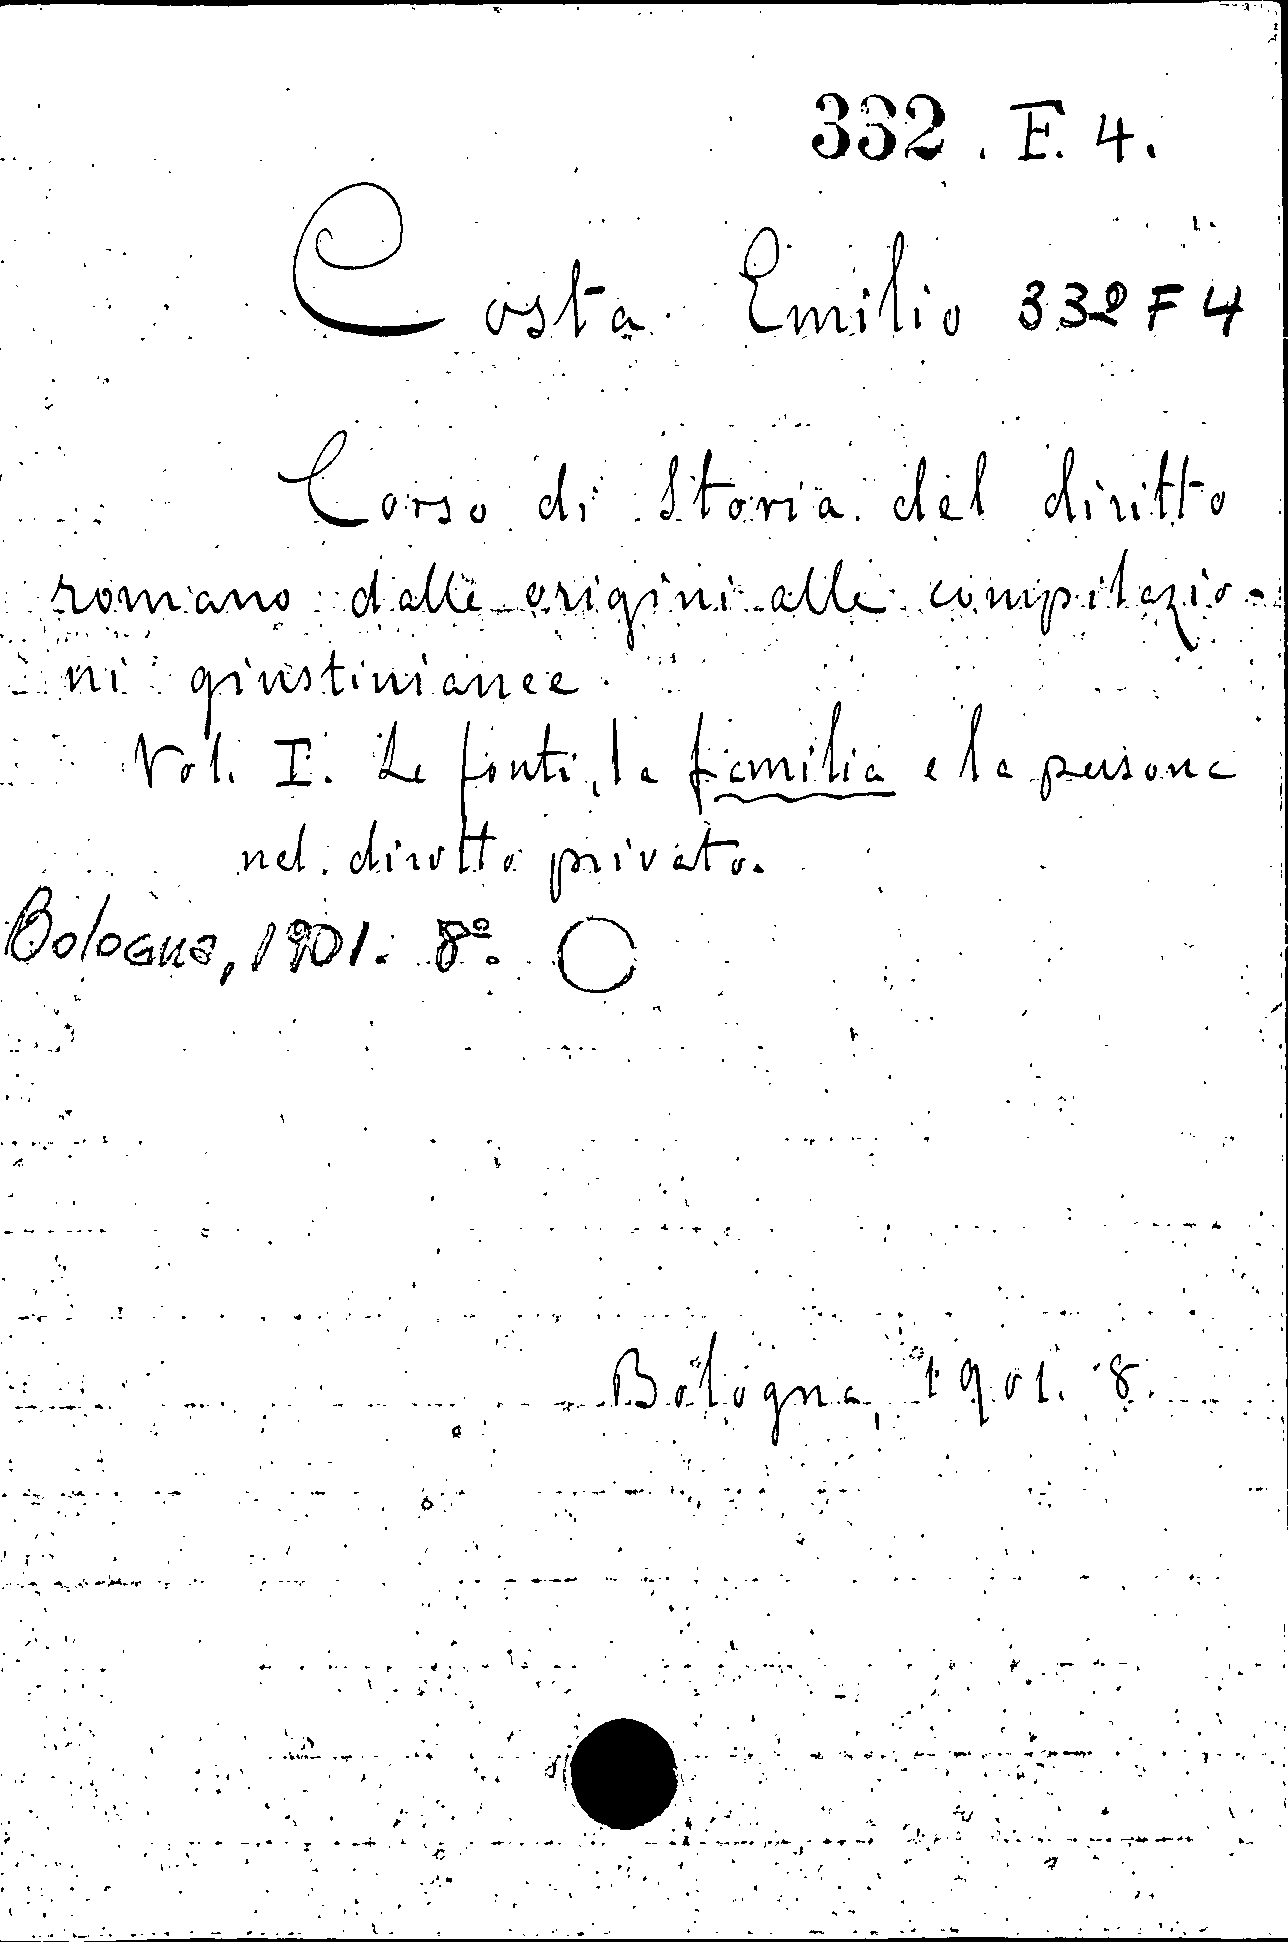 332. F. 4.
Costa Emilio 332 F 4
Corso di Storia del diritto
romano dalle origini alle compilazio-
ni giustinianee
Vol. I. Le fonti, la familia e la persona
nel diritto privato.
Bologna, 1901. 8º.
Bologna, 1901. 8.